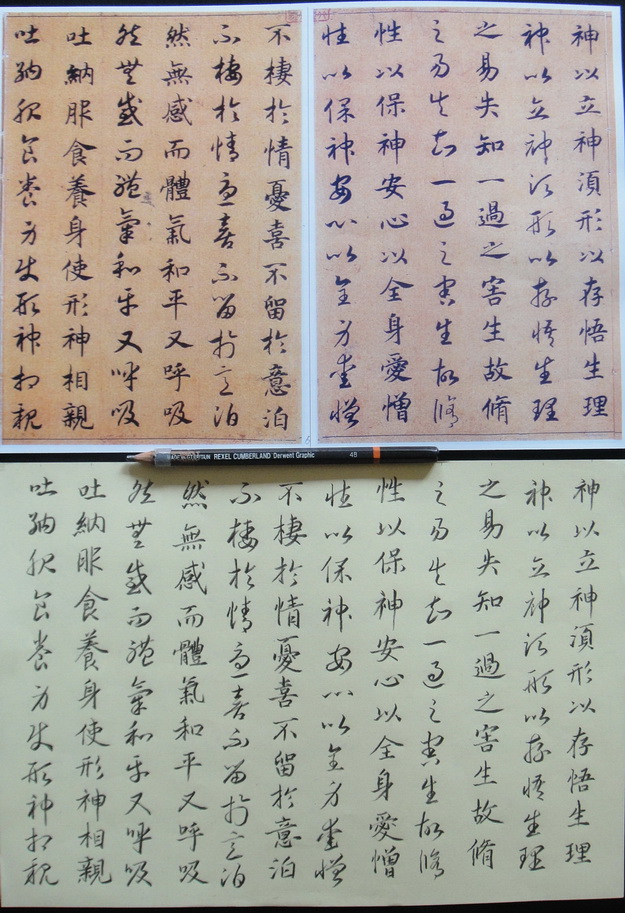 神以立神湏形以存悟生理
神以立神湏形以存悟生理
之易失知一過之害生故脩
之易失知一過之害生故脩
性以保神安心以全身愛憎
性以保神安心以全身愛憎
不棲於情憂喜不留於意泊
不棲於情憂喜不留於意泊
然無感而體氣和平又呼吸
然無感而體氣和平又呼吸
吐納服食養身使形神相親
吐納服食養身使形神相親
REXEL CUMBERLAND Derwent Graphic 4B
神以立神湏形以存悟生理
神以立神湏形以存悟生理
之易失知一過之害生故脩
之易失知一過之害生故脩
性以保神安心以全身愛憎
性以保神安心以全身愛憎
不棲於情憂喜不留於意泊
不棲於情憂喜不留於意泊
然無感而體氣和平又呼吸
然無感而體氣和平又呼吸
吐納服食養身使形神相親
吐納服食養身使形神相親